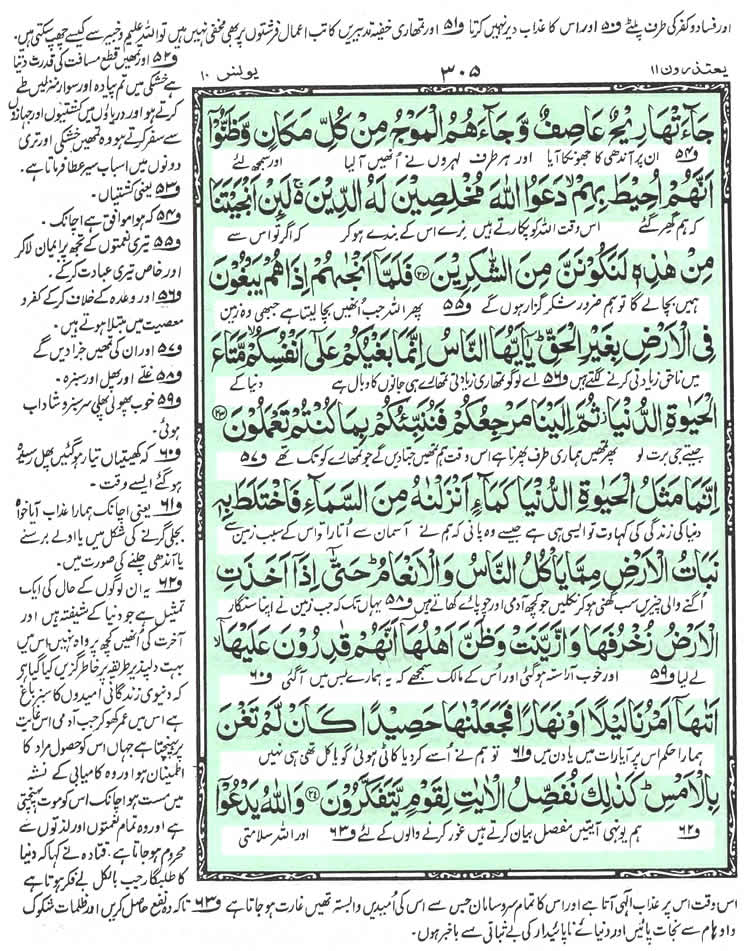 اور فساد و کفر کی طرف پلٹے ف۵۰ اور اس کا عذاب دیر نہیں کرتا ف۵۱ اور تمھاری خفیہ تدبیریں کاتب اعمال فرشتوں پر بھی مخفی نہیں ہیں تو اللہ علیم و خبیر سے کیسے چھپ سکتی ہیں۔
یعتذرون ۱۱
۳۰۵
یونس ۱۰
جَآءَتْهَا رِیْحٌ عَاصِفٌ وَّ جَآءَهُمُ الْمَوْجُ مِنْ كُلِّ مَكَانٍ وَّ ظَنُّوْۤا
ف۵۴ ان پر آندھی کا جھونکا آیا اور ہر طرف لہروں نے اُنھیں آ لیا اور سمجھ لئے
اَنَّهُمْ اُحِیْطَ بِهِمْ ۙ دَعَوُا اللّٰهَ مُخْلِصِیْنَ لَهُ الدِّیْنَ ۚ لَىِٕنْ اَنْجَیْتَنَا
کہ ہم گھر گئے اس وقت اللہ کو پکارتے ہیں نرے اس کے بندے ہو کر کہ اگر تو اس سے
مِنْ هٰذِهٖ لَنَكُوْنَنَّ مِنَ الشّٰكِرِیْنَ ۝۲۲ فَلَمَّاۤ اَنْجٰىهُمْ اِذَا هُمْ یَبْغُوْنَ
ہمیں بچا لے گا تو ہم ضرور شکر گزار ہوں گے ف۵۵ پھر اللہ جب اُنھیں بچا لیتا ہے جبھی وہ زمین
فِی الْاَرْضِ بِغَیْرِ الْحَقِّ ؕ یٰۤاَیُّهَا النَّاسُ اِنَّمَا بَغْیُكُمْ عَلٰۤى اَنْفُسِكُمْ ۙ مَّتَاعَ
میں ناحق زیادتی کرنے لگتے ہیں ف۵۶ اے لوگو تمھاری زیادتی تمھارے ہی جانوں کا وبال ہے دنیا کے
الْحَیٰوةِ الدُّنْیَا ؗ ثُمَّ اِلَیْنَا مَرْجِعُكُمْ فَنُنَبِّئُكُمْ بِمَا كُنْتُمْ تَعْمَلُوْنَ ۝۲۳
جیتے جی برت لو پھر تمھیں ہماری طرف پھرنا ہے اس وقت ہم تمھیں جتا دیں گے جو تمھارے کوتک تھے ف۵۷
اِنَّمَا مَثَلُ الْحَیٰوةِ الدُّنْیَا كَمَآءٍ اَنْزَلْنٰهُ مِنَ السَّمَآءِ فَاخْتَلَطَ بِهٖ
دنیا کی زندگی کی کہاوت تو ایسی ہی ہے جیسے وہ پانی کہ ہم نے آسمان سے اُتارا تو اس کے سبب زمین سے
نَبَاتُ الْاَرْضِ مِمَّا یَاْكُلُ النَّاسُ وَ الْاَنْعَامُ ؕ حَتّٰۤى اِذَاۤ اَخَذَتِ
اُگنے والی چیزیں سب گھنی ہو کر نکلیں جو کچھ آدمی اور چوپائے کھاتے ہیں ف۵۸ یہاں تک کہ جب زمین نے اپنا سنگار
الْاَرْضُ زُخْرُفَهَا وَ ازَّیَّنَتْ وَ ظَنَّ اَهْلُهَاۤ اَنَّهُمْ قٰدِرُوْنَ عَلَیْهَاۤ ۙ
لے لیا ف۵۹ اور خوب آراستہ ہو گئی اور اُس کے مالک سمجھے کہ یہ ہمارے بس میں آ گئی ف۶۰
اَتٰىهَاۤ اَمْرُنَا لَیْلًا اَوْ نَهَارًا فَجَعَلْنٰهَا حَصِیْدًا كَاَنْ لَّمْ تَغْنَ
ہمارا حکم اس پر آیا رات میں یا دن میں ف۶۱ تو ہم نے اُسے کر دیا کاٹی ہوئی گویا کل تھی ہی نہیں
بِالْاَمْسِ ؕ كَذٰلِكَ نُفَصِّلُ الْاٰیٰتِ لِقَوْمٍ یَّتَفَكَّرُوْنَ ۝۲۴ وَ اللّٰهُ یَدْعُوْۤا
ف۶۲ ہم یونہی آیتیں مفصل بیان کرتے ہیں غور کرنے والوں کے لئے ف۶۳ اور اللہ سلامتی
ف۵۲ اور تمھیں قطع مسافت کی قدرت دیتا
ہے خشکی میں تم پیادہ اور سوار منزلیں طے
کرتے ہو اور دریاؤں میں کشتیوں اور جہازوں
سے سفر کرتے ہو وہ تمھیں خشکی اور تری
دونوں میں اسباب سیر عطا فرماتا ہے۔
ف۵۳ یعنی کشتیاں۔
ف۵۴ کہ ہوا موافق ہے اچانک۔
ف۵۵ تیری نعمتوں کے تجھ پر ایمان لا کر
اور خاص تیری عبادت کر کے۔
ف۵۶ اور وعدہ کے خلاف کر کے کفر و
معصیت میں مبتلا ہوتے ہیں۔
ف۵۷ اور ان کی تمھیں جزا دیں گے
ف۵۸ غلے اور پھل اور سبزہ۔
ف۵۹ خوب پھولی پھلی سرسبز و شاداب
ہوئی۔
ف۶۰ کہ کھیتیاں تیار ہو گئیں پھل رسیدہ
ہو گئے ایسے وقت۔
ف۶۱ یعنی اچانک ہمارا عذاب آیا خواہ
بجلی گرنے کی شکل میں یا اولے برسنے
یا آندھی چلنے کی صورت میں۔
ف۶۲ یہ ان لوگوں کے حال کی ایک
تمثیل ہے جو دنیا کے شیفتہ ہیں اور
آخرت کی اُنھیں کچھ پرواہ نہیں اس میں
بہت دلپذیر طریقہ پر خاطر گزیں کیا گیا ہے
کہ دنیوی زندگانی امیدوں کا سبز باغ
ہے اس میں عمر کھو کر جب آدمی اس غایت
پر پہنچتا ہے جہاں اس کو حصول مراد کا
اطمینان ہو اور وہ کامیابی کے نشہ
میں مست ہو اچانک اس کو موت پہنچتی
ہے اور وہ تمام نعمتوں اور لذتوں سے
محروم ہو جاتا ہے۔ قتادہ نے کہا کہ دنیا
کا طلبگار جب بالکل بے فکر ہوتا ہے
اس وقت اس پر عذاب الٰہی آتا ہے اور اس کا تمام سر و سامان جس سے اس کی اُمیدیں وابستہ تھیں غارت ہو جاتا ہے ف۶۳ تاکہ وہ نفع حاصل کریں اور ظلمات شکوک
و اوہام سے نجات پائیں اور دنیائے ناپائیدار کی بے ثباتی سے باخبر ہوں۔